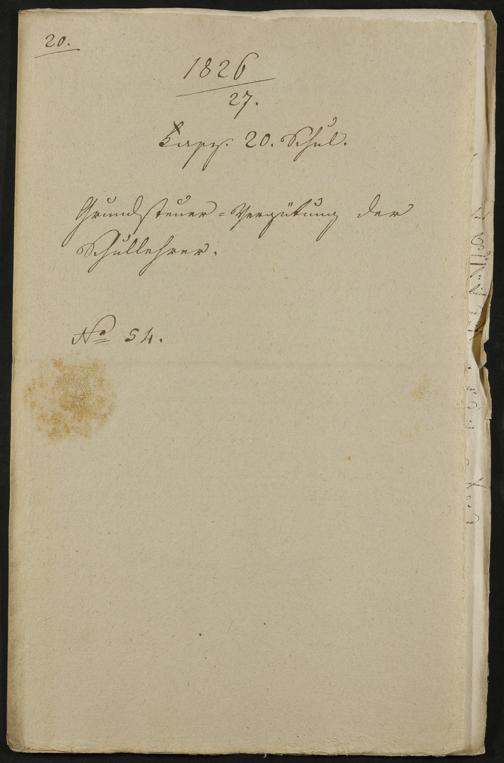 20.
1826
27.
Kapp. 20. Schul.
Grundsteuer=Vergütung der
Schullehrer.
No 54.